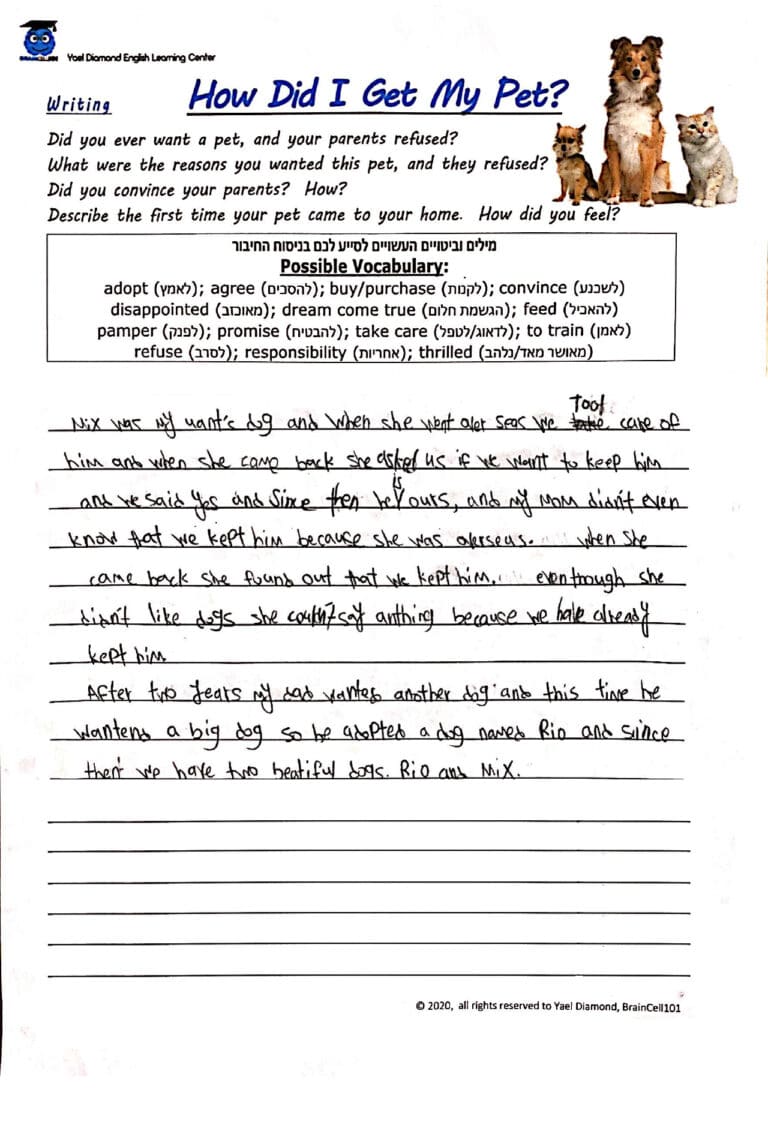 BRAINCELL101 Yael Diamond English Learning Center
Writing How Did I Get My Pet?
Did you ever want a pet, and your parents refused?
What were the reasons you wanted this pet, and they refused?
Did you convince your parents? How?
Describe the first time your pet came to your home. How did you feel?
מילים וביטויים העשויים לסייע לכם בניסוח החיבור
Possible Vocabulary:
adopt (לאמץ); agree (להסכים); buy/purchase (לקנות); convince (לשכנע)
disappointed (מאוכזב); dream come true (הגשמת חלום); feed (להאכיל)
pamper (לפנק); promise (להבטיח); take care (לדאוג/לטפל); to train (לאמן)
refuse (לסרב); responsibility (אחריות); thrilled (מאושר מאד/נלהב)
Toof
Mix was my uant's dog and when she went over seas we care of
him and when she came back she asked us if we want to keep him
is
and we said yes and since then he yours, and my mom didn't even
know that we kept him because she was overseas. when she
came back she found out that we kept him. eventrough she
didn't like dogs she couldn't say anthing because we have already
kept him
After two years my dad wanted another dog and this time he
wantend a big dog so he adopted a dog named Rio and since
then we have two beatiful dogs. Rio and Mix.
© 2020, all rights reserved to Yael Diamond, BrainCell101